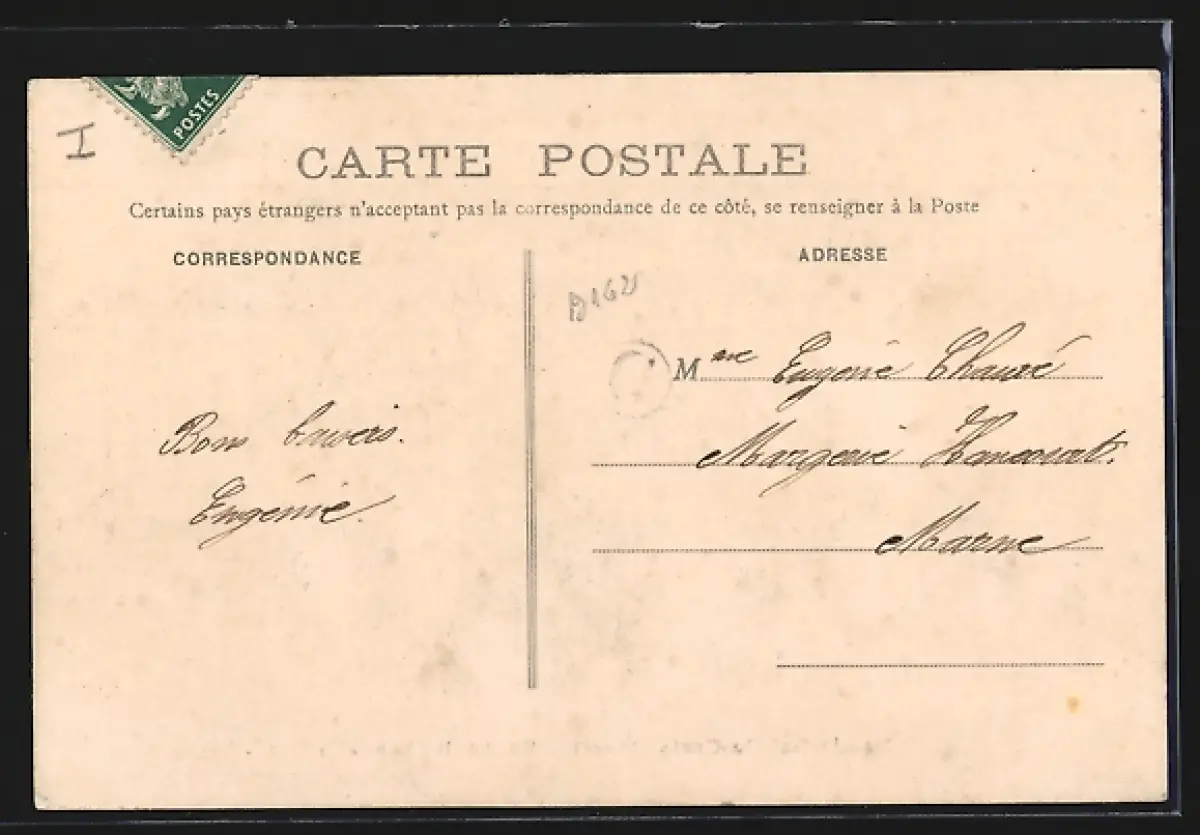 POSTES
I
CARTE POSTALE
Certains pays étrangers n'acceptant pas la correspondance de ce côté, se renseigner à la Poste
CORRESPONDANCE
ADRESSE
Mme Eugénie
Margerie Hancourt.
Marne
Bons baisers.
Eugénie.